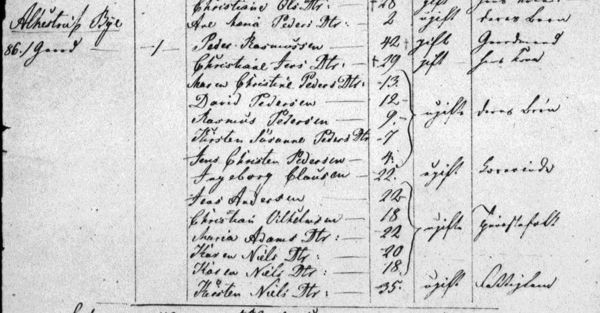 Christiane Ols Dtr: 28
Alhestrup Bÿe Ane Lena Peders Dtr: 2 ugift deres Børn
86./ Gaard 1 Peder Rasmussen 42 gift Gaardmand
Christiane Jens Dtr: 39 gift hans Kone
Maren Christine Peders Dtr: 13
David Pedersen 12
Rasmus Pedersen 9 ugifte deres Børn
Kirsten Susanne Peders Dtr 7
Jens Christen Pedersen 4
Ingeborg Clausen 22 ugift
Jens Andersen 22
Christian Vilhelmsen 18
Maria Adams Dtr: 22 ugifte Tjenestefolk
Karen Niels Dtr: 20
Karen Niels Dtr: 18
Kirsten Niels Dtr: 35 ugift Fattiglem